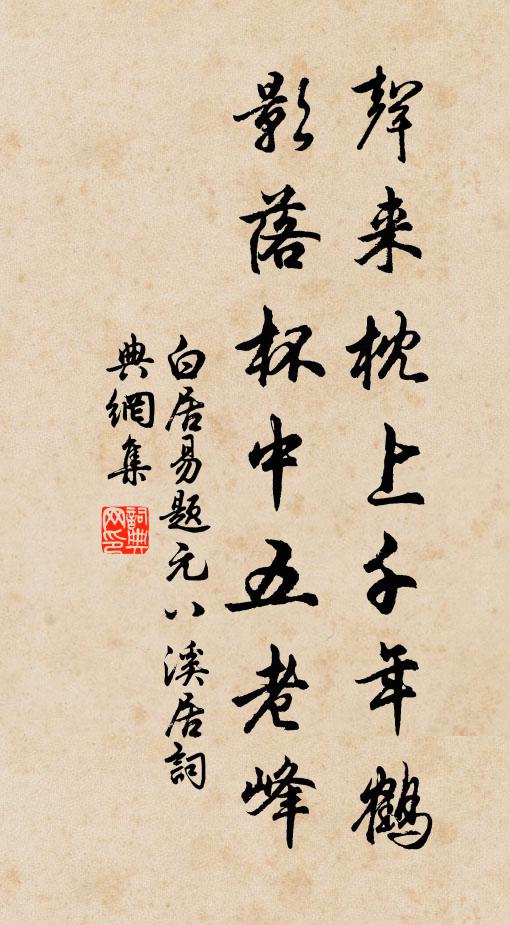 聲来枕上千年鶴
影落杯中五老峰
白居易题元八溪居詞
典網集
詞典網印